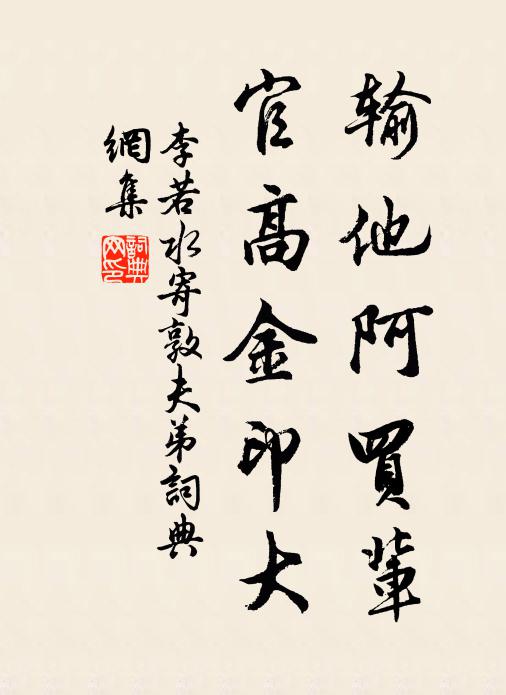 輸他阿買輩
官高金印大
李若水寄敦夫弟詞典
網集
詞典網印